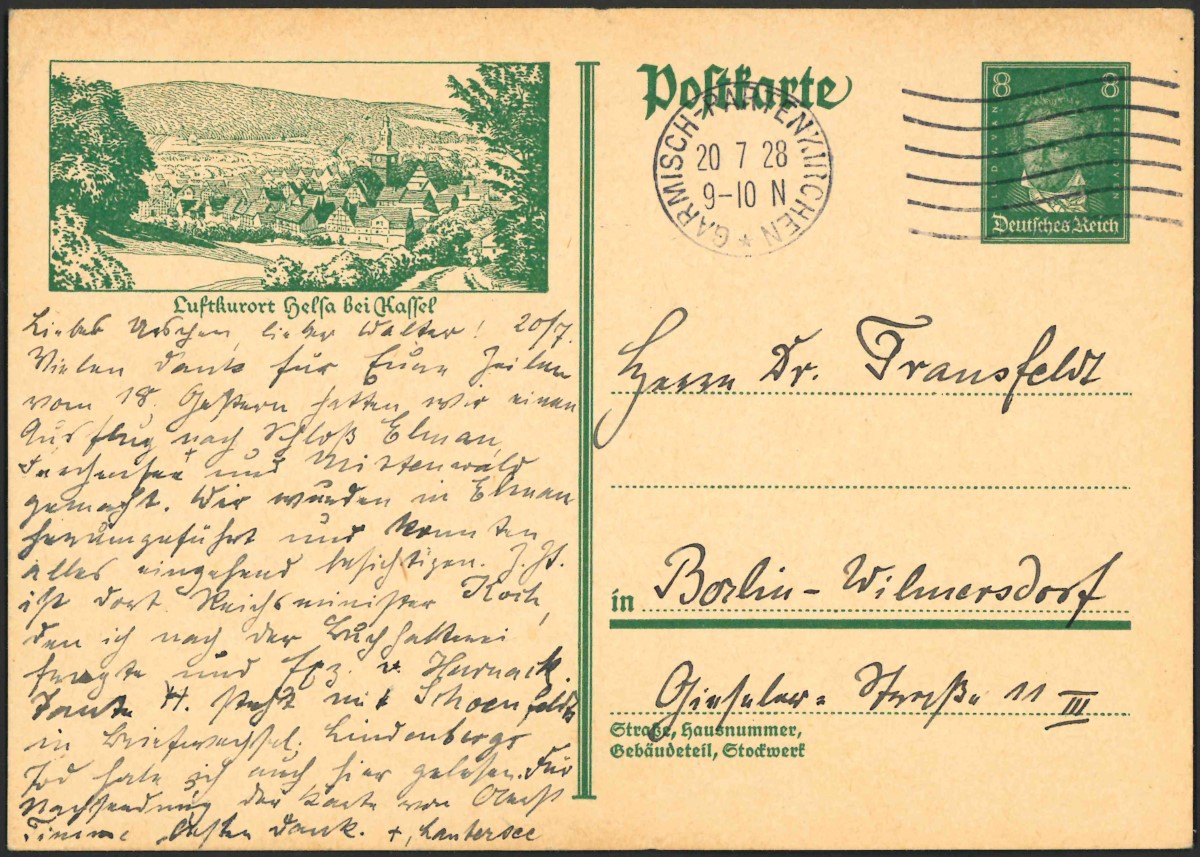 Postkarte
GARMISCH-PARTENKIRCHEN
20 7 28
9-10 N
8 8
Deutsches Reich
Luftkurort Helsa bei Kassel
Liebes Urschen, lieber Walter! 20/7.
Vielen Dank für Eure Zeilen
vom 18. Gestern hatten wir einen
Ausflug nach Schloß Elmau,
und Mittenwald
gemacht. Wir wurden in Elmau
herumgeführt und konnten
alles eingehend besichtigen. Z. Zt.
ist dort Reichsminister Koch,
den ich nach der Buchhalterei
fragte und Exz. v. Harnack.
Tante H. steht mit Schoenfeldts
in Briefwechsel. Lindenbergs
Tod habe ich auch hier gelesen. Für
Nachsendung der Karte von Oberst
Timme besten Dank. +, Lautersee
Herrn Dr. Transfeldt
in Berlin-Wilmersdorf
Gieseler-Straße 11 III
Straße, Hausnummer,
Gebäudeteil, Stockwerk